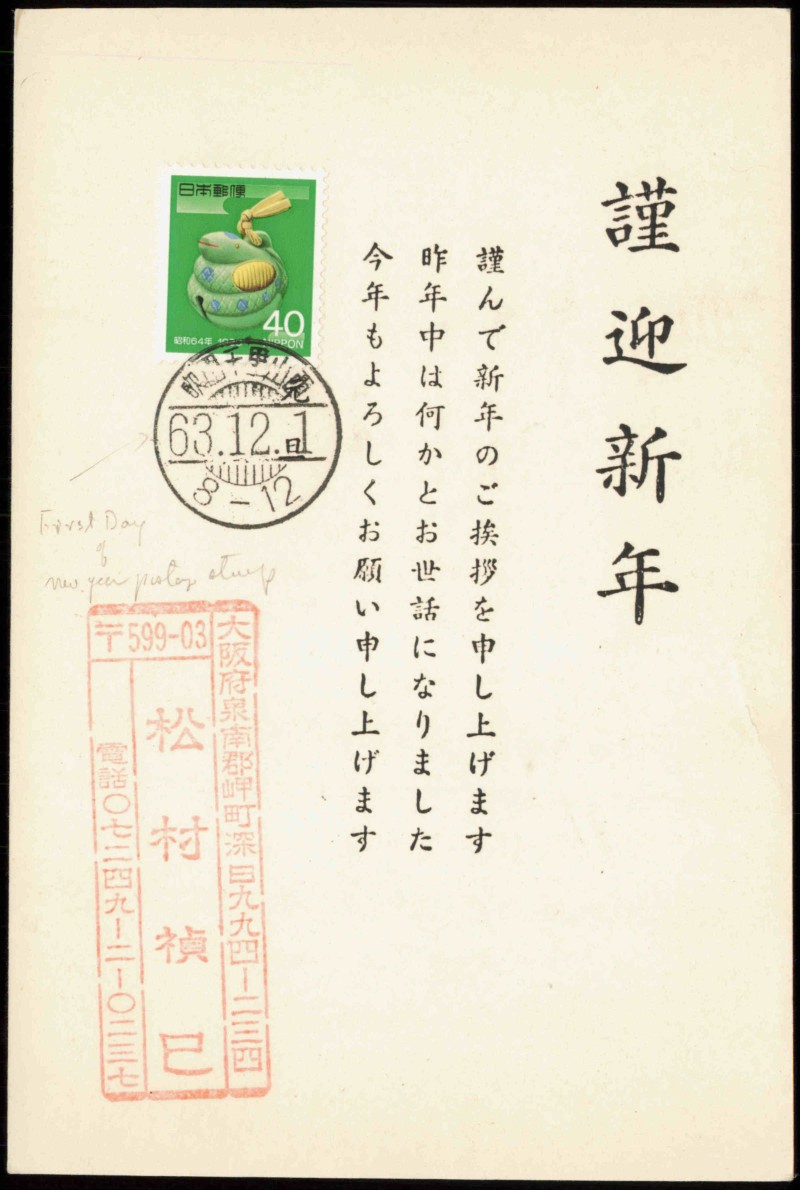 謹迎新年
謹んで新年のご挨拶を申し上げます
昨年中は何かとお世話になりました
今年もよろしくお願い申し上げます
日本郵便
40
昭和64年
NIPPON
63.12.1
8-12
First Day
of
new year postage stamp
大阪府泉南郡岬町深日九九四ー二三四
〒599-03
松村禎巳
電話〇七二四九ー二ー〇二三七